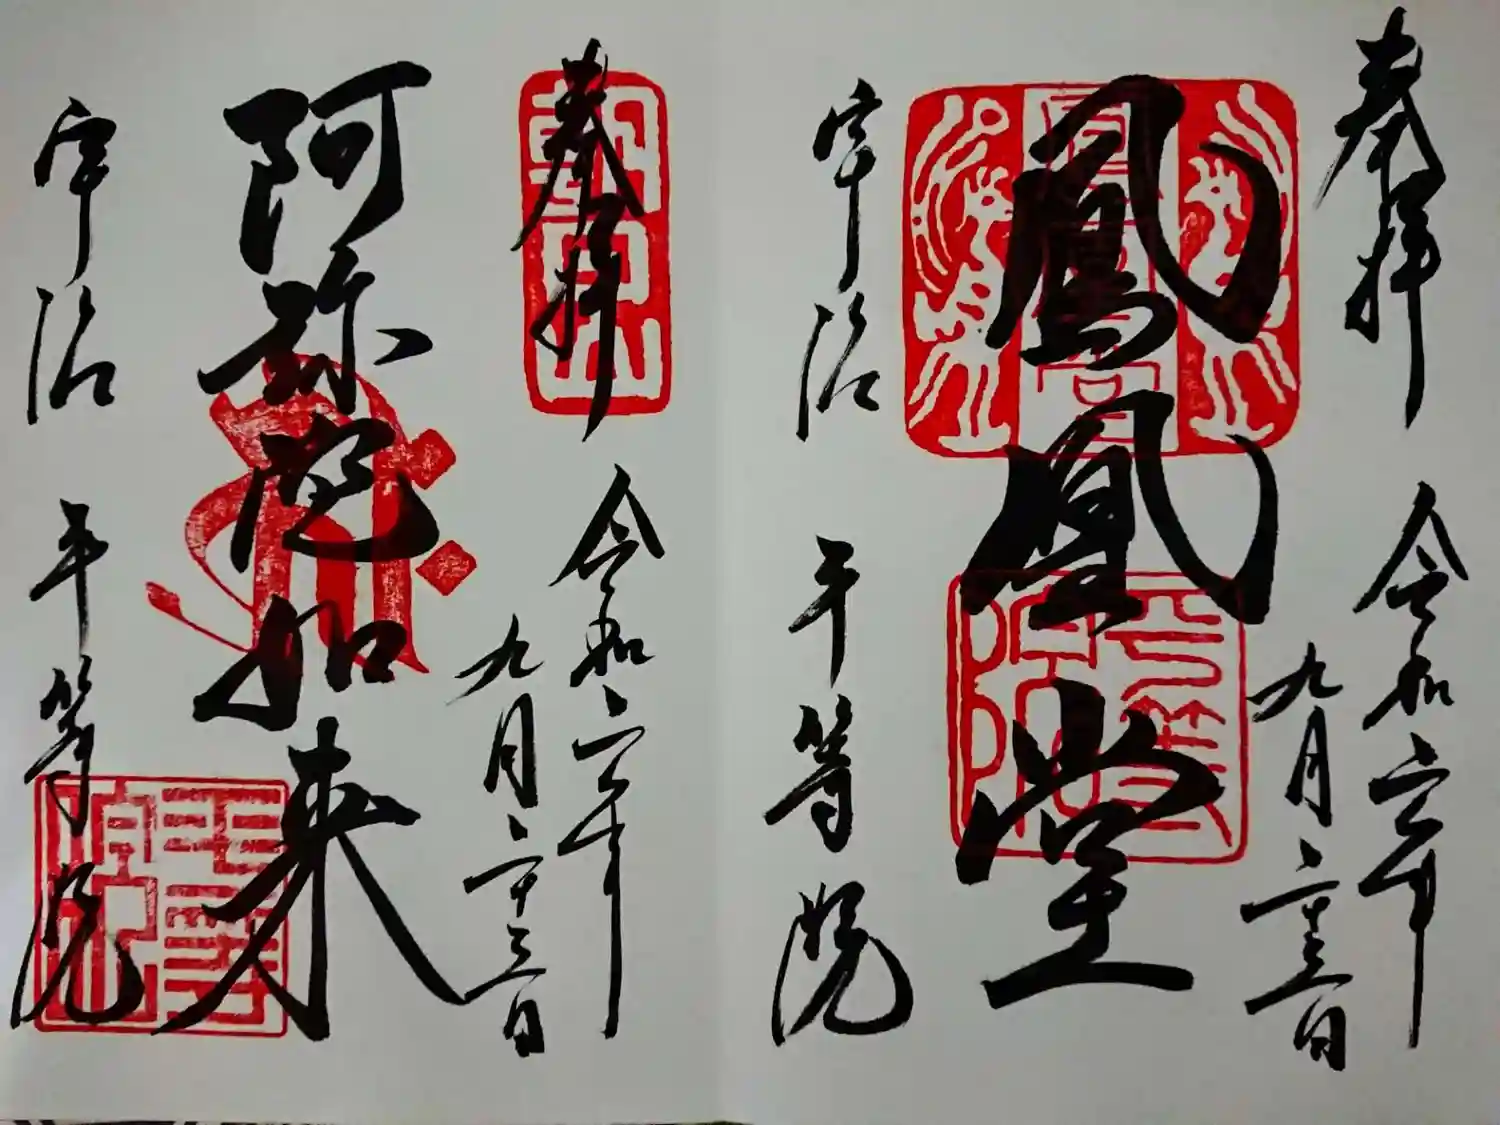 奉拝
令和六年
九月二十三日
鳳凰堂
宇治 平等院
奉拝
令和六年
九月二十三日
阿弥陀如来
宇治 平等院